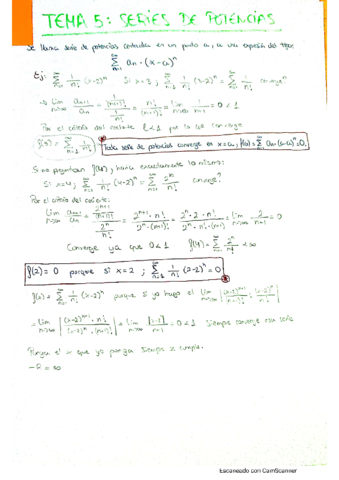 TEMA 5: SERIES DE POTENCIAS
Se llama serie de potencias centradas en un punto a, a una expresión del tipo:
∞ Σ n=1 an · (x-a)^n
Ej: ∞ Σ n=1 1/n! (x-2)^n Si x=3 ; ∞ Σ n=1 1/n! (3-2)^n = ∞ Σ n=1 1/n! converge?
⇒ lim n→∞ an+1/an = 1/(n+1)! / 1/n! = n!/(n+1)! = lim n→∞ 1/n+1 = 0 < 1
Por el criterio del cociente l<1 por lo que converge
f(3) = ∞ Σ n=1 1/n! Toda serie de potencias converge en x=a, f(a) = ∞ Σ n=1 an (a-a)^n = 0
Si me preguntan f(4), haría exactamente lo mismo:
Si x=4; ∞ Σ n=1 1/n! (x-2)^n = ∞ Σ n=1 2^n/n! converge?
Por el criterio del cociente:
lim n→∞ an+1/an = 2^n+1/(n+1)! / 2^n/n! = 2^n+1 · n!/2^n · (n+1)! = 2^n · 2 · n!/2^n · n! · (n+1) = lim n→∞ 2/n+1 = 0
Converge ya que 0<1 f(4) = ∞ Σ n=1 2^n/n! < ∞
f(2) = 0 porque si x=2 ; ∞ Σ n=1 1/n! (2-2)^n = 0
f(x) = ∞ Σ n=1 1/n! (x-2)^n porque si yo hago el lim n→∞ | (x-2)^n+1/(n+1)! / (x-2)^n/n! |
= lim n→∞ | (x-2)^n+1 · n!/(x-2)^n · (n+1)! | = lim n→∞ |x-2|/n+1 = 0 < 1 siempre converge esta serie
Ponga el x que yo ponga siempre se cumple.
-R = ∞
Escaneado con CamScanner